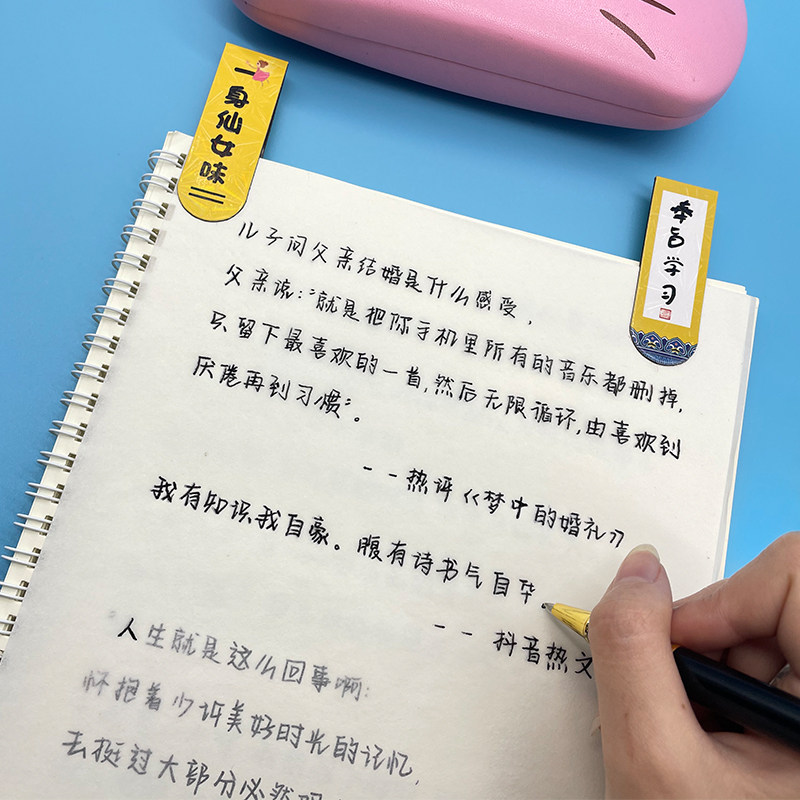 一身仙女味
奉旨学习
儿子问父亲结婚是什么感受，
父亲说：“就是把你手机里所有的音乐都删掉，
只留下最喜欢的一首，然后无限循环，由喜欢到
厌倦再到习惯”。
--热评《梦中的婚礼》
我有知识我自豪。腹有诗书气自华。
-- 抖音热文
“人生就是这么回事啊：
怀抱着少许美好时光的记忆，
去挺过大部分必然